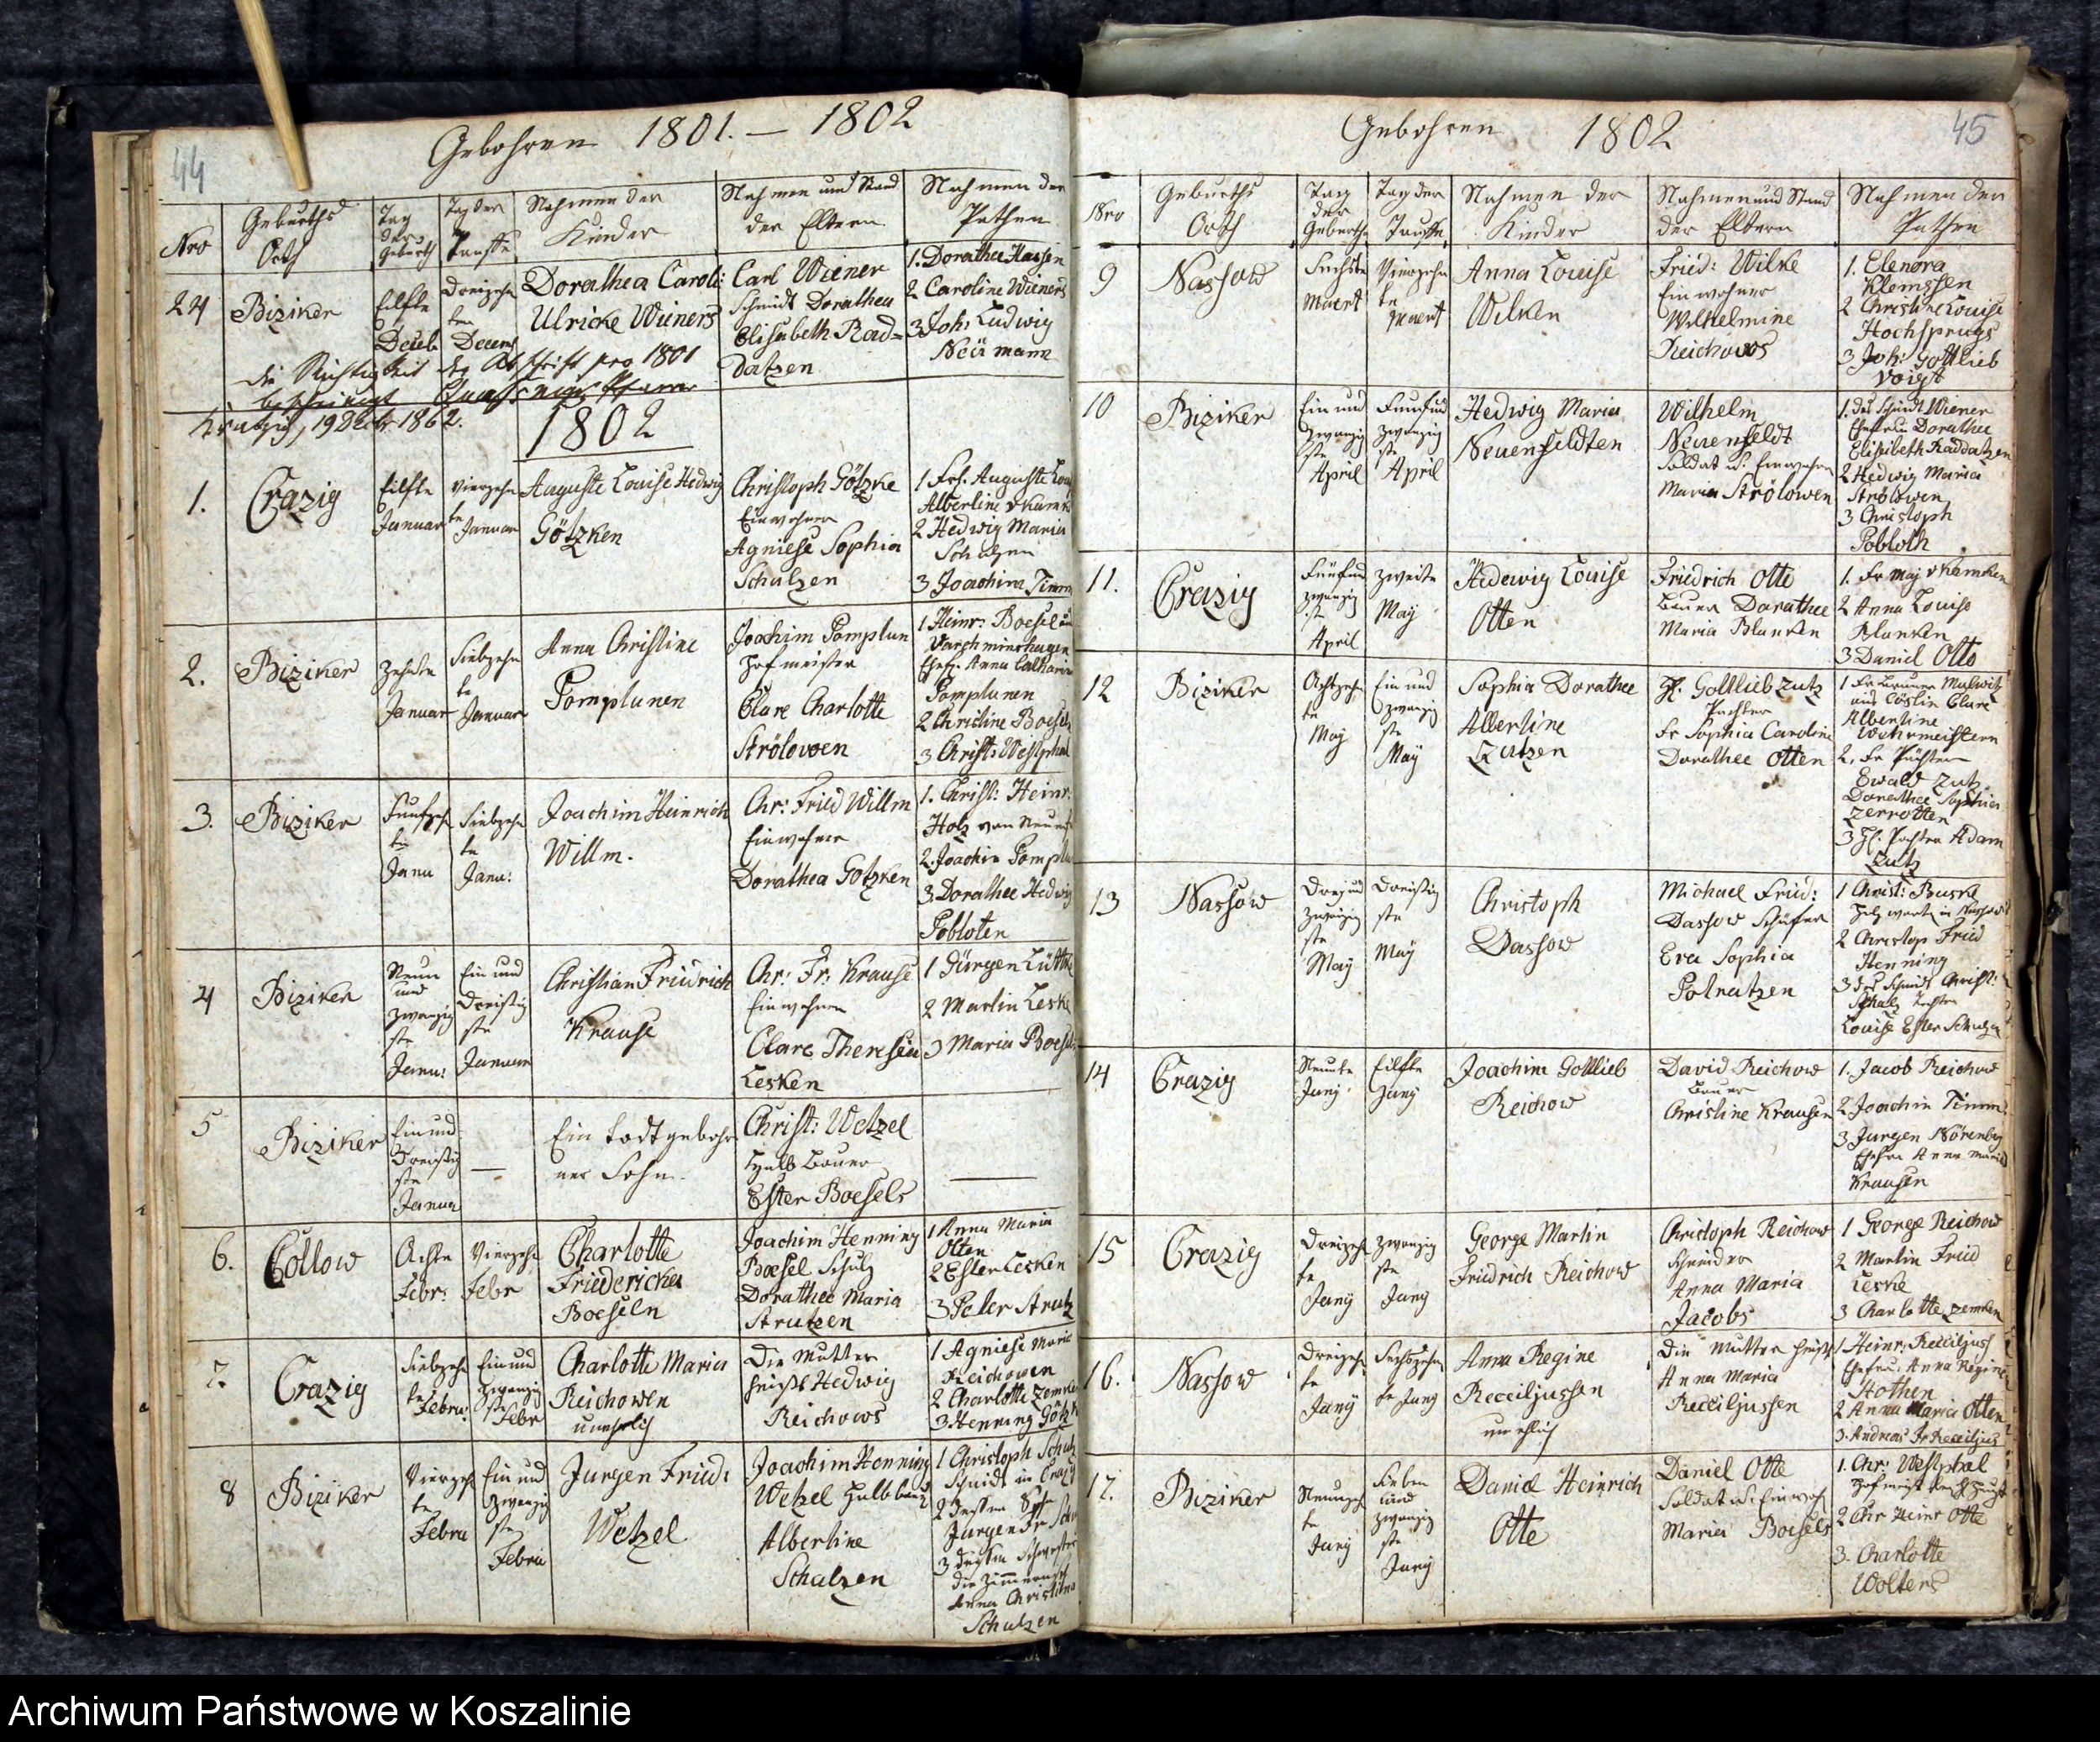 44
Gebohren 1801. — 1802
Nro
Geburths Orth
Tag der Geburth
Tag der Tauffe
Nahmen der Kinder
Nahmen und Stand der Eltern
Nahmen der Pathen
24
Biziker
Eilfte
Decbr
Dreizehn
ten
Decemb
Dorathea Caroli:
Ulricke Wieners
Carl Wiener
Schmidt Dorathea
Elisabeth Rad=
datzen
1. Dorathee Hansen
2 Caroline Wieners
3 Joh: Ludwig
Neümann
die Richtigkeit der Abschrift pro 1801
bescheinigt
Kratzig, 19 Decbr 1862.
1802
1.
Crazig
Eilfte
Januar
Vierzehn
te
Januar
Auguste Louise Hedwig
Götzken
Christoph Götzke
Einwohner
Agniese Sophia
Schulzen
1 Frl. Auguste
Albertine v Kam
2 Hedwig Maria
Schulzen
3 Joachim Timm
2.
Biziker
Zehnte
Januar
Siebzehn
te
Januar
Anna Christine
Pomplunen
Joachim Pomplun
Hofmeister
Clare Charlotte
Strölowen
1 Heinr: Boesel
Varchminshagen
Ehefr. Anna Catharina
Pomplunen
2 Christine Boeseln
3 Christ: Westphal
3.
Biziker
Funfzehn
te
Janu
Siebzehn
te
Janu:
Joachim Heinrich
Willm.
Chr: Fried Willm
Einwohner
Dorathea Götzken
1. Christ: Heinr:
Holz von
2. Joachim Pomplun
3. Dorathee Hedwig
Pobloten
4
Biziker
Neun
und
zwanzig
ste
Janu:
Ein und
dreißig
ste
Januar
Christian Friedrich
Krause
Chr: Fr: Krause
Einwohner
Clare Theresia
Lesken
1 Jürgen Lüttke
2 Martin Leske
3 Maria Boesel
5
Biziker
Ein und
dreißig
ste
Janua
—
Ein todtgebohr
ner Sohn.
Christ: Wetzel
Halb Bauer
Ester Boesels
—
6.
Collow
Achte
Febr:
Vierzehn
Febr
Charlotte
Friedericka
Boeseln
Joachim Henning
Boesel Schulz
Dorathee Maria
Strutzen
1 Anna Maria
Otten
2 Ester Lesken
3 Peter Strutz
7.
Crazig
Siebzehn
te Febru:
Ein und
zwanzig
ste Febr
Charlotte Maria
Reichowen
unehelich
Die Mutter
heißt Hedwig
Reichows
1 Agniese Maria
Reichowen
2 Charlotte Zemken
3 Henning Götzk
8
Biziker
Vierzehn
te
Febru
Ein und
zwanzig
ste
Febru
Jurgen Fried:
Wetzel
Joachim Henning
Wetzel Halbbauer
Albertine
Schulzen
1 Christoph Schulz
Schmidt in Crazig
2
Jurgen Fr Schu
3 dessen Schwester
Anna Christina
Schulzen
45
Gebohren 1802
Nro
Geburths Orth
Tag der Geburth
Tag der Tauffe
Nahmen der Kinder
Nahmen und Stand der Eltern
Nahmen der Pathen
9
Nassow
Sechste
Maert
Vierzehn
te
Maert
Anna Louise
Wilken
Fried: Wilke
Einwohner
Wilhelmine
Reichows
1. Elenora
Klemssen
2 Christine Louise
Hochsprugs
3 Joh: Gottlieb
Voigt
10
Biziker
Ein und
zwanzig
ste
April
Fünf und
zwanzig
ste
April
Hedwig Maria
Neuenfeldten
Wilhelm
Neuenfeldt
Soldat u. Einwohner
Maria Strölowen
1. des Schmidt Wiener
Ehefrau Dorathee
Elisabeth Raddatzen
2 Hedwig Maria
Strölowen
3 Christoph
Pobloth
11.
Crazig
Fünfund
zwanzig
ste
April
zweite
May
Hedewig Louise
Otten
Friedrich Otte
Bauer Dorathee
Maria Blanken
1. Fr Maj v Kamken
2 Anna Louise
Blanken
3 Daniel Otto
12
Biziker
Achtzehn
te
May
Ein und
zwanzig
ste
Maÿ
Sophia Dorathee
Albertine
Zutzen
H. Gottlieb Zutz
Pachter
Fr Sophia Caroline
Dorathee Otten
1 Fr
aus Cöslin Clare
Albertine
Wehrmeistern
2. Fr Pächter
Ewald Zutz
Dorathee Sophia
Zerrotten
3 H. Pachter Adam
Zutz
13
Nassow
Drey und
zwanzig
ste
May
Dreißig
ste
May
Christoph
Dassow
Michael Fried:
Dassow Schäfer
Eva Sophia
Polratzen
1 Christ: Buske
Holzwarter in Nassow
2 Christop Fried
Henning
3 des Schmidt Christ:
Schulz Tochter
Louise Ester Schulzen
14
Crazig
Neunte
Juny
Eilfte
Juny
Joachim Gottlieb
Reichow
David Reichow
Bauer
Christine Krausen
1. Jacob Reichow
2 Joachim Timm
3 Jurgen Nörenberg
Ehefrau Anna Maria
Krausen
15
Crazig
Dreizehn
te
Juny
zwanzig
ste
Juny
George Martin
Friedrich Reichow
Christoph Reichow
Schneider
Anna Maria
Jacobs
1 George Reichow
2 Martin Fried
Leske
3 Charlotte Zemken
16.
Nassow
Dreizehn
te
Juny
Sechszehn
te Juny
Anna Regine
Recciljussen
unehlich
Die Mutter heißt
Anna Maria
Recciljussen
1 Heinr: Recciljus
Ehefrau: Anna Regine
Stothen
2 Anna Maria Otten
3. Andreas Fr Recciljus
17.
Biziker
Neunzehn
te
Juny
Sieben
und
zwanzig
ste
Juny
Daniel Heinrich
Otte
Daniel Otte
Soldat u. Einwoh
Maria Boesels
1. Chr: Westphal
2 Chr Heinr Otte
3. Charlotte
Wolters
Archiwum Państwowe w Koszalinie